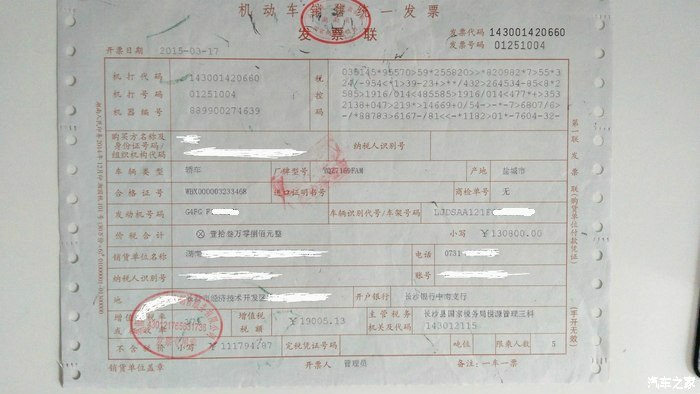 机动车销售统一发票
发票联
发票代码 143001420660
发票号码 01251004
开票日期 2015-03-17
机打代码 143001420660
机打号码 01251004
机器编号 889900274639
税控码
购买方名称及
身份证号码/
组织机构代码
纳税人识别号
车辆类型 轿车 厂牌型号 产地 盐城市
合格证号 WHX000003233468 进口证明书号 商检单号 无
发动机号码 G4FG 车辆识别代号/车架号码
价税合计 ⊗壹拾叁万零捌佰元整 小写 ￥130800.00
销货单位名称 湖南 电话 0731-
纳税人识别号 账号
地 经济技术开发区 开户银行 长沙银行中南支行
增值税税率 增值税税额 ￥19005.13 主管税务机关及代码 长沙县国家税务局税源管理三科 143012115
不含税价 小写 ￥111794.87 完税凭证号码 吨位 限乘人数 5
销货单位盖章 开票人 管理员 备注：一车一票
第一联 发票联(购货单位付款凭证)
(手开无效)
汽车之家